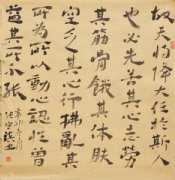 故天将降大任於斯人
也必先苦其心志劳
其筋骨餓其体膚
空乏其身行拂亂其
所為所以動心忍性曾
益其所不能